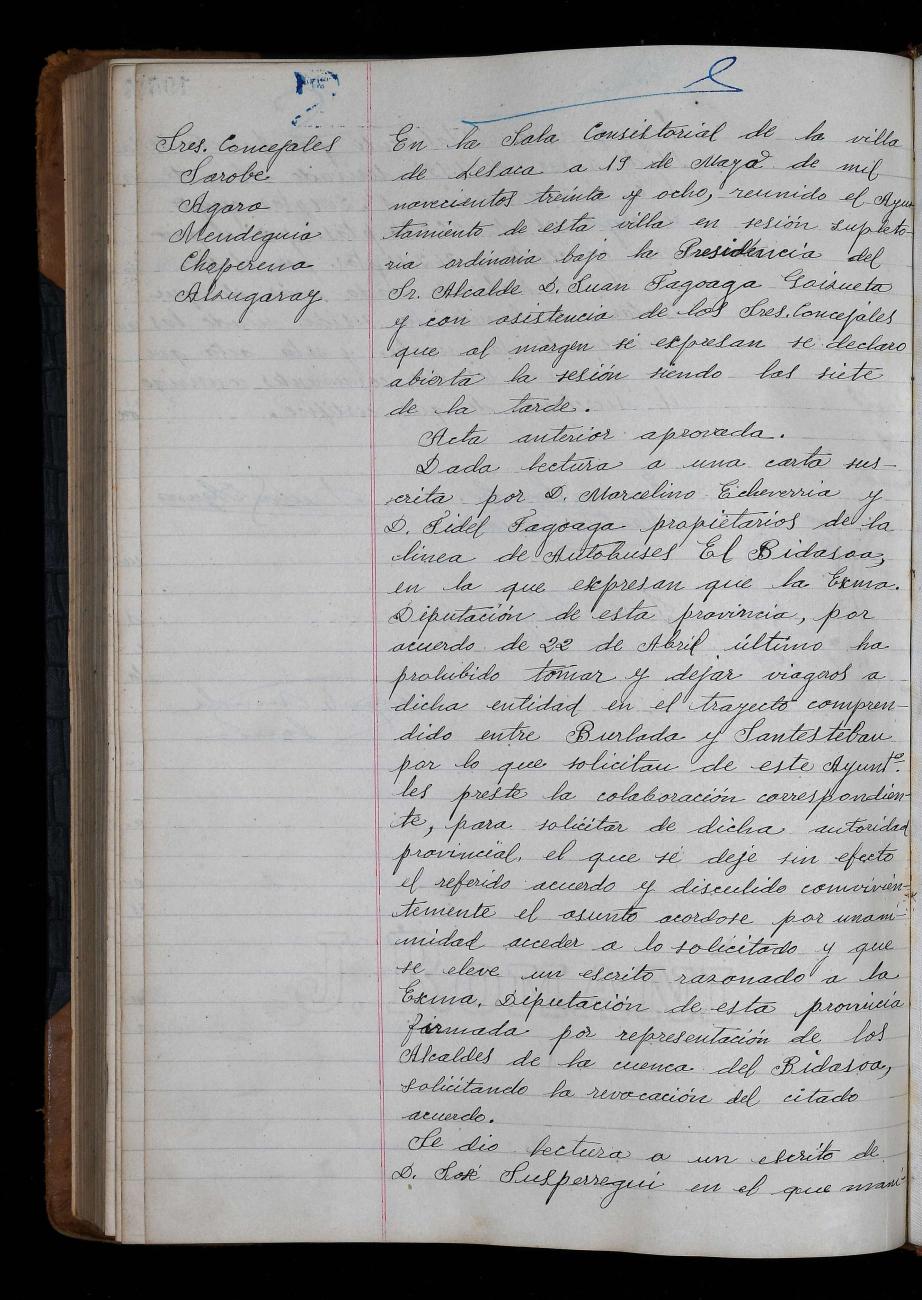 Sres. Concejales
Sarobe
Agara
Mendeguia
Cheperena
Alzugaray
En la Sala Consistorial de la villa
de Lesaca a 19 de Mayo de mil
novecientos treinta y ocho, reunido el Ayun-
tamiento de esta villa en sesión supleto-
ria ordinaria bajo la Presidencia del
Sr. Alcalde D. Juan Tagoaga Goizueta
y con asistencia de los Sres. Concejales
que al margen se expresan se declaro
abierta la sesión siendo las siete
de la tarde.
Acta anterior aprovada.
Dada lectura a una carta sus-
crita por D. Marcelino Echeverria y
D. Fidel Tagoaga propietarios de la
linea de Autobuses El Bidasoa,
en la que expresan que la Exma.
Diputación de esta provincia, por
acuerdo de 22 de Abril último ha
prohibido tomar y dejar viageros a
dicha entidad en el trayecto compren-
dido entre Burlada y Santesteban
por lo que solicitan de este Ayunto.
les preste la colaboración correspondien-
te, para solicitar de dicha autoridad
provincial, el que se deje sin efecto
el referido acuerdo y discutido convivien-
temente el asunto acordose por unani-
midad acceder a lo solicitado y que
se eleve un escrito razonado a la
Exma. Diputación de esta provincia
firmada por representación de los
Alcaldes de la cuenca del Bidasoa,
solicitando la revocación del citado
acuerdo.
Se dio lectura a un escrito de
D. José Susperregui en el que mani-